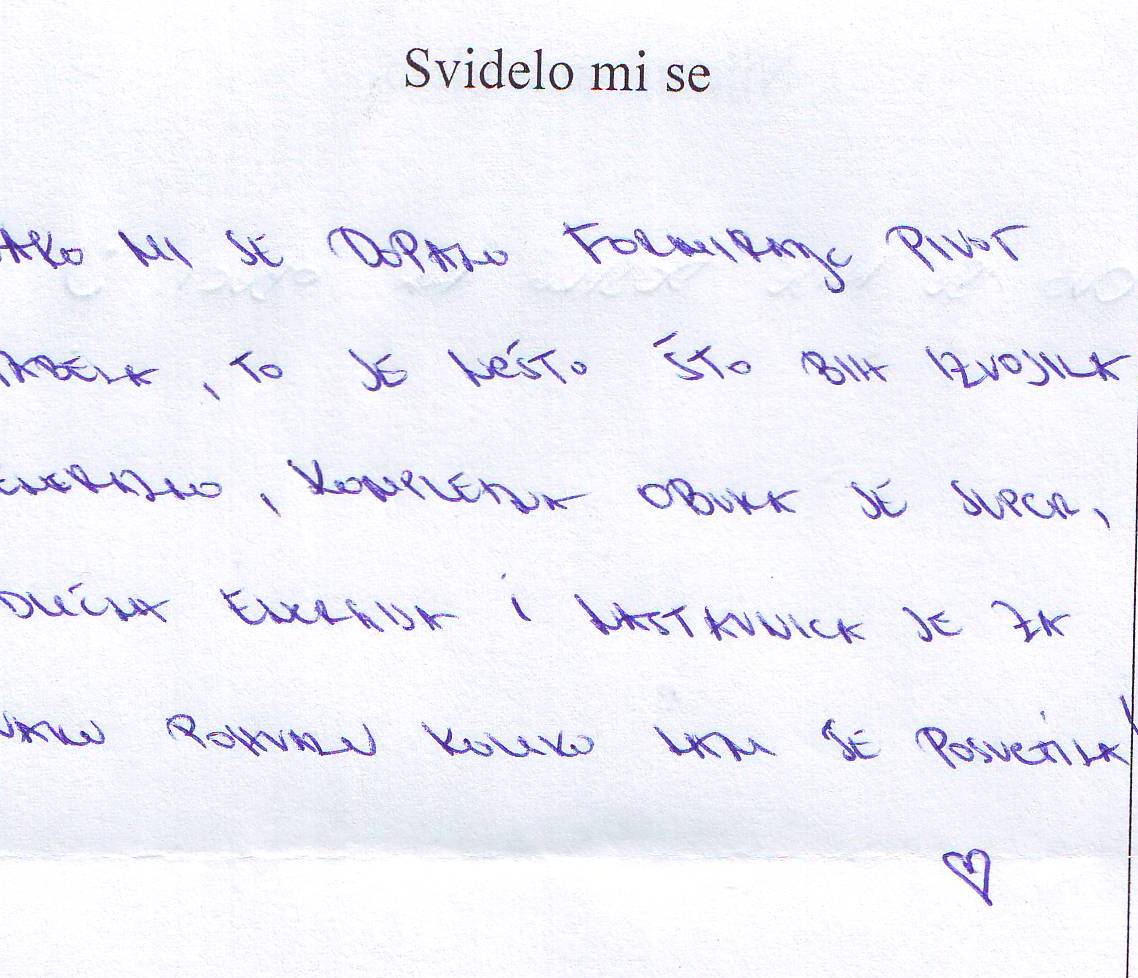 Svidelo mi se
AKO MI SE DOPALO FORMIRANJE PIVOT
TABELA, TO JE NEŠTO ŠTO BIH IZVOJILA
ENERALNO, KOMPLETNA OBUKA JE SUPER,
ODLIČNA ENERGIJA I NASTAVNICA JE ZA
SVAKU POHVALU KOLIKO NAM SE POSVETILA!
♡